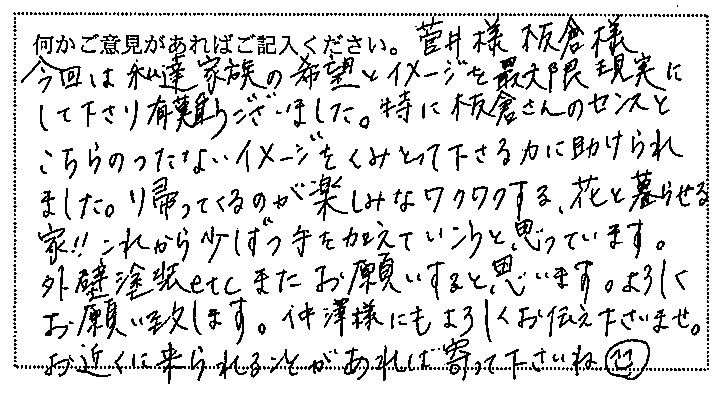 何かご意見があればご記入ください。 菅井様 板倉様
今回は私達家族の希望とイメージを最大限現実に
して下さり有難うございました。特に板倉さんのセンスと
こちらのつたないイメージをくみとって下さる力に助けられ
ました。り帰ってくるのが楽しみなワクワクする、花と暮らせる
家!! これから少しずつ手を加えていこうと思っています。
外壁塗装etcまたお願いすると思います。よろしく
お願い致します。仲澤様にもよろしくお伝え下さいませ。
お近くに来られることがあれば寄って下さいね